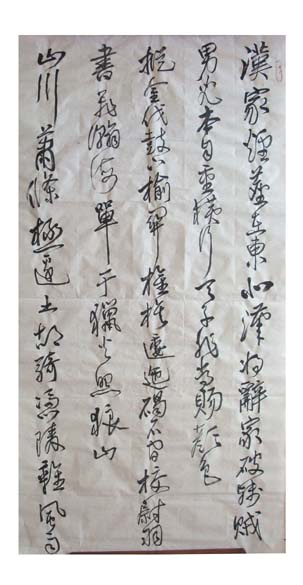 漢家煙塵在東北漢將辭家破殘賊
男兒本自重橫行天子非常賜顏色
摐金伐鼓下榆關旌旆逶迤碣石間校尉羽
書飛瀚海單于獵火照狼山
山川蕭條極邊土胡騎憑陵雜風雨